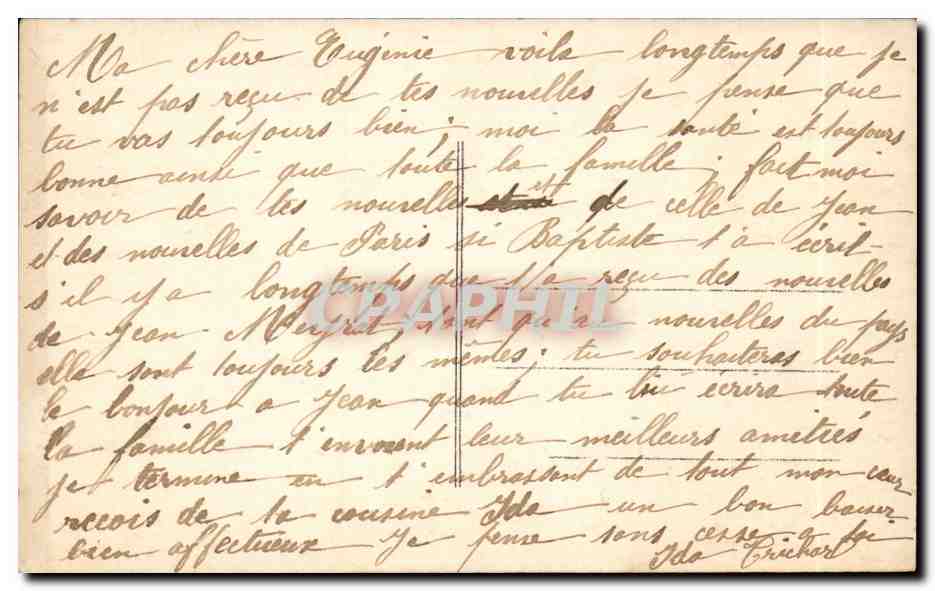 Ma chère Eugénie voila longtemps que je
n'est pas reçu de tes nouvelles je pense que
tu vas toujours bien; moi la santé est toujours
bonne ainsi que toute la famille; fait moi
savoir de tes nouvelles et de celle de Jean
et des nouvelles de Paris si Baptiste t'a écrit
s'il y a longtemps que t'a reçu des nouvelles
de Jean nouvelles du pays
elle sont toujours les mêmes; tu souhaiteras bien
le bonjour a Jean quand tu lui écrira toute
la famille t'envoient leur meilleurs amitiés
je termine en t'embrassant de tout mon cœur
recois de ta cousine Ida un bon baiser
bien affectueux Je pense sans cesse a toi
Ida
CPAPHIL